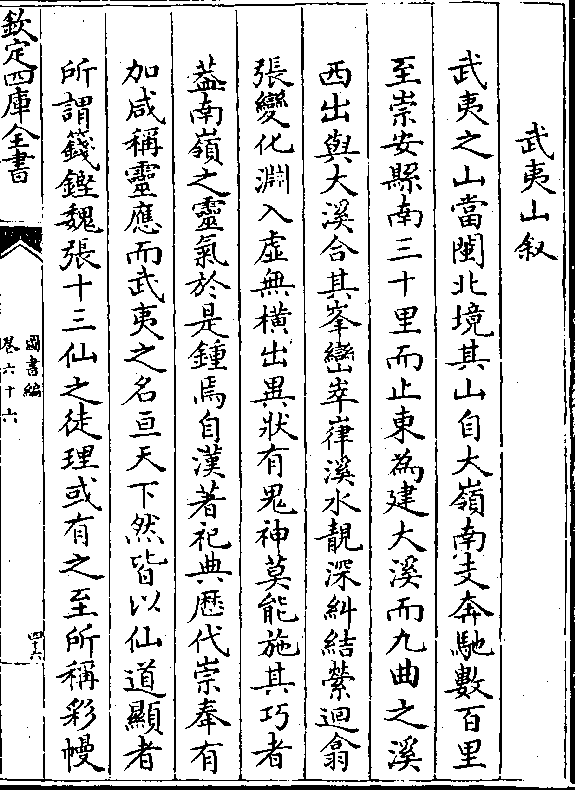 武夷山叙
武夷之山當閩北境其山自大嶺南支奔馳數百里
至崇安縣南三十里而止東為建大溪而九曲之溪
西出與大溪合其峯巒崒嵂溪水靚深糾結縈迴翕
張變化淵入虛無橫出異狀有鬼神莫能施其巧者
葢南嶺之靈氣於是鍾焉自漢著祀典歷代崇奉有
加咸稱靈應而武夷之名亘天下然皆以仙道顯者
所謂籛鏗魏張十三仙之徒理或有之至所稱彩幔
欽定四庫全書
圖書編
卷六十六
四六